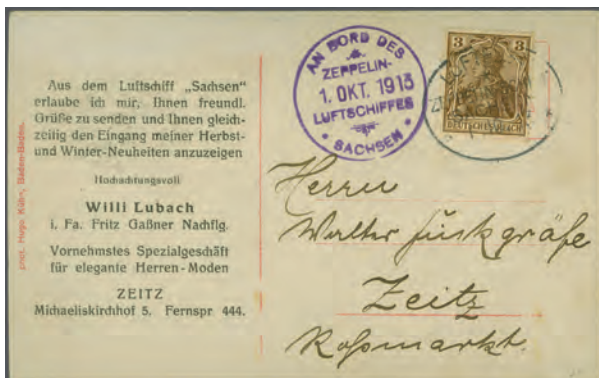 Aus dem Luftschiff „Sachsen“
erlaube ich mir, Ihnen freundl.
Grüße zu senden und Ihnen gleich-
zeitig den Eingang meiner Herbst-
und Winter-Neuheiten anzuzeigen
Hochachtungsvoll
Willi Lubach
i. Fa. Fritz Gaßner Nachflg.
Vornehmstes Spezialgeschäft
für elegante Herren-Moden
ZEITZ
Michaeliskirchhof 5. Fernspr 444.
phot. Hugo Kühn, Baden-Baden.
AN BORD DES
ZEPPELIN-
1. OKT. 1913
LUFTSCHIFFES
SACHSEN
3 3
DEUTSCHES REICH
Herrn
Walter
Zeitz
Roßmarkt.